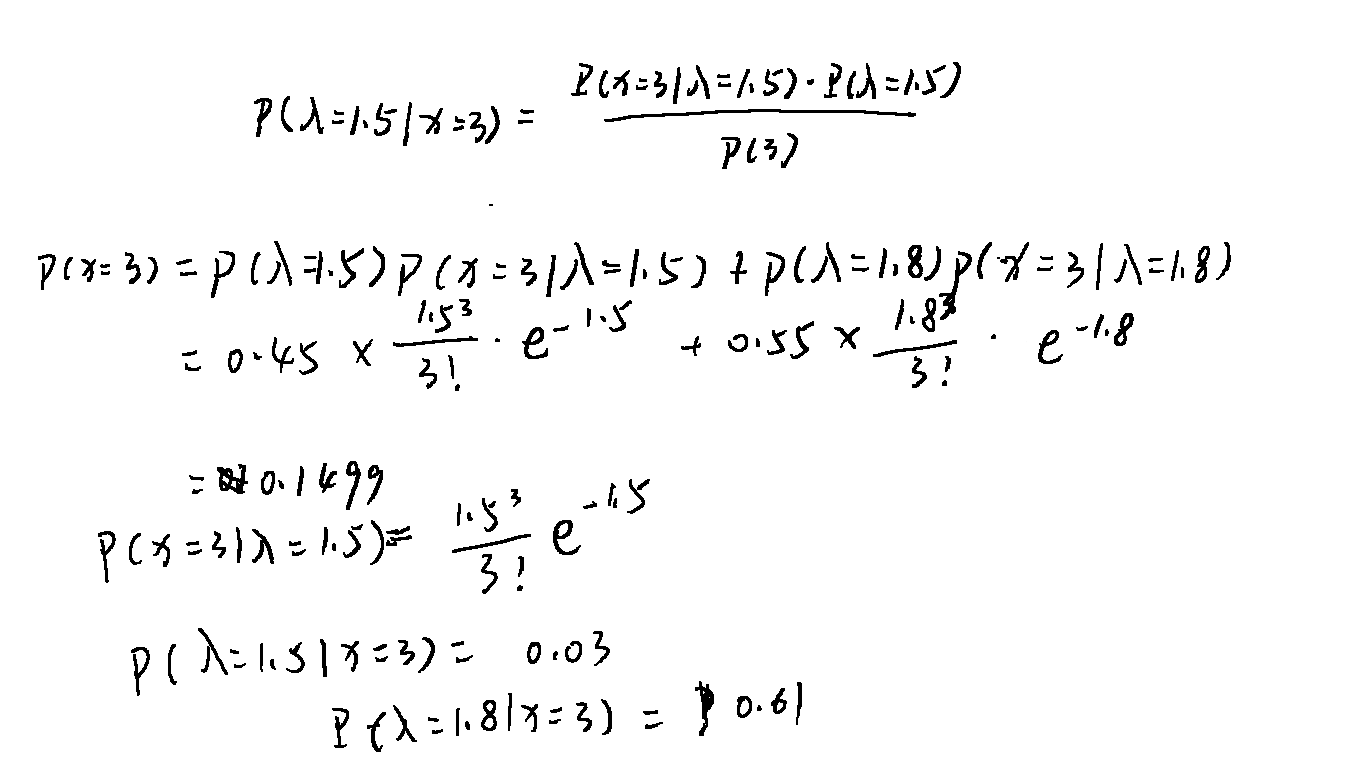 P(λ=1.5|x=3) = P(x=3|λ=1.5)·P(λ=1.5) / P(3)
P(x=3) = P(λ=1.5)P(x=3|λ=1.5) + P(λ=1.8)P(x=3|λ=1.8)
= 0.45 × 1.5³/3! · e^-1.5 + 0.55 × 1.8³/3! · e^-1.8
= 0.1499
P(x=3|λ=1.5) = 1.5³/3! e^-1.5
P(λ=1.5|x=3) = 0.03
P(λ=1.8|x=3) = 0.61